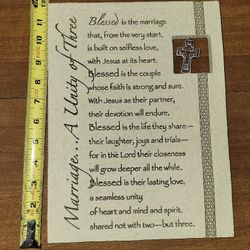 Marriage...A Unity of Three
Blessed is the marriage
that, from the very start,
is built on selfless love,
with Jesus at its heart.
Blessed is the couple
whose faith is strong and sure.
With Jesus as their partner,
their devotion will endure.
Blessed is the life they share—
their laughter, joys and trials—
for in their Lord their closeness
will grow deeper all the while.
Blessed is their lasting love,
a seamless unity
of heart and mind and spirit,
shared not with two—but three.
12
11
10
9
8
7
6
5
4
3
2